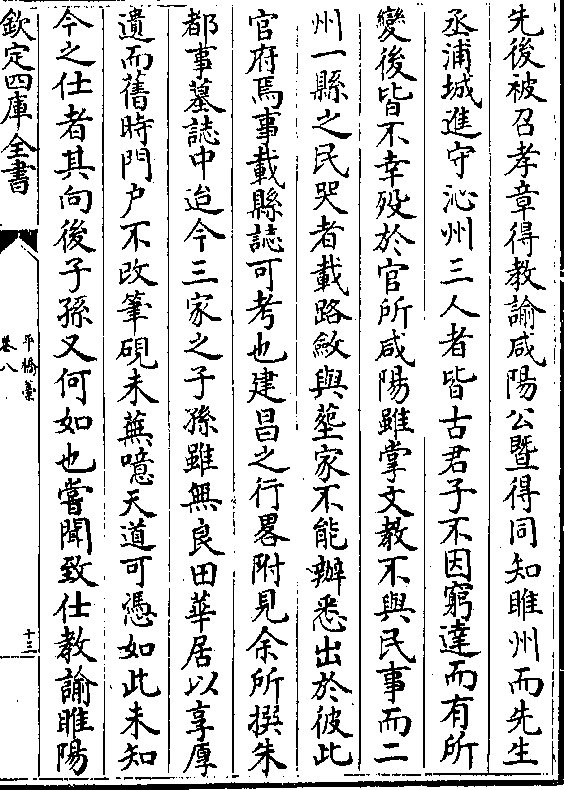 先後被召孝章得教諭咸陽公暨得同知睢州而先生
丞浦城進守沁州三人者皆古君子不因窮達而有所
變後皆不幸殁於官所咸陽雖掌文教不與民事而二
州一縣之民哭者載路斂與塟家不能辦悉出於彼此
官府焉事載縣誌可考也建昌之行畧附見余所撰朱
都事墓誌中迨今三家之子孫雖無良田華居以享厚
遺而舊時門户不改筆硯未蕪噫天道可憑如此未知
今之仕者其向後子孫又何如也嘗聞致仕教諭睢陽
欽定四庫全書
平橋藁
卷八
十三